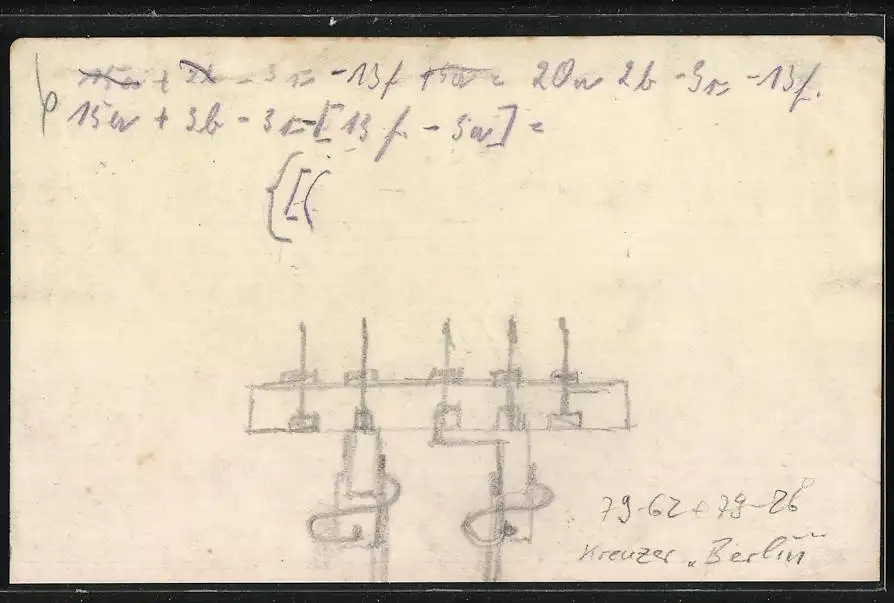 15a + 2b - 3r - 13f + 5a = 20a 2b - 3r - 13f.
b 15a + 3b - 3r - [13f - 5a] =
{[(
79-62 + 79-26
Kreuzer „Berlin"